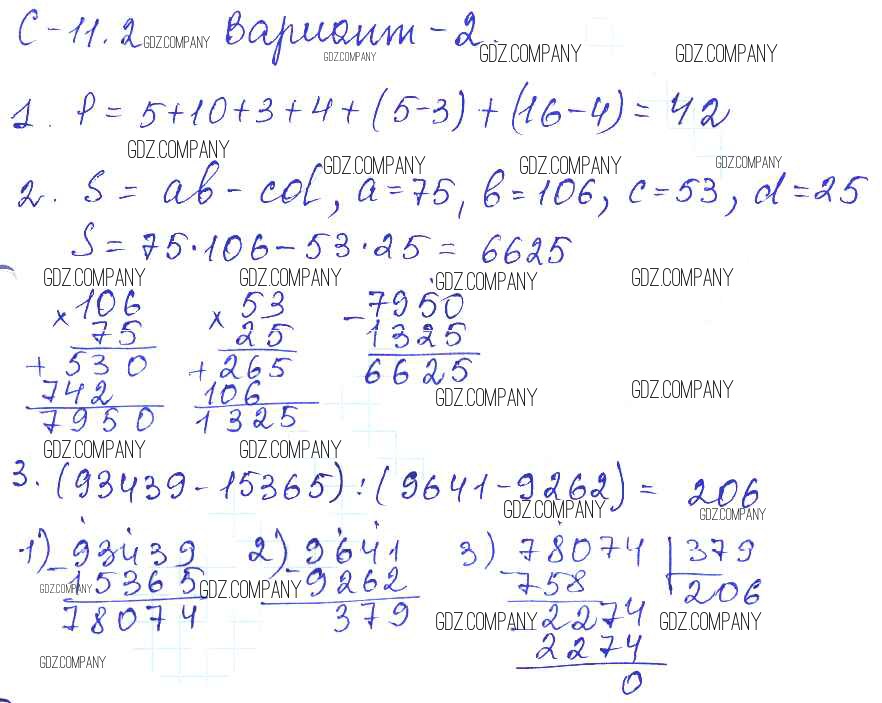 С-11.2 GDZ.COMPANY Вариант-2 GDZ.COMPANY GDZ.COMPANY GDZ.COMPANY
1. P = 5+10+3+4+(5-3)+(16-4)=42
GDZ.COMPANY GDZ.COMPANY GDZ.COMPANY GDZ.COMPANY
2. S = ab - cd, a=75, b=106, c=53, d=25
S = 75·106-53·25 = 6625
GDZ.COMPANY GDZ.COMPANY GDZ.COMPANY GDZ.COMPANY
×106 ×53 -7950
75 25 1325
+530 +265 6625
742 106 GDZ.COMPANY GDZ.COMPANY
7950 1325
GDZ.COMPANY GDZ.COMPANY
3. (93439-15365):(9641-9262)= 206
GDZ.COMPANY GDZ.COMPANY
1) -93439 2) -9641 3) -78074 |379
GDZ.COMPANY 15365 GDZ.COMPANY 9262 758 206
78074 379 GDZ.COMPANY -2274 GDZ.COMPANY
2274
GDZ.COMPANY 0